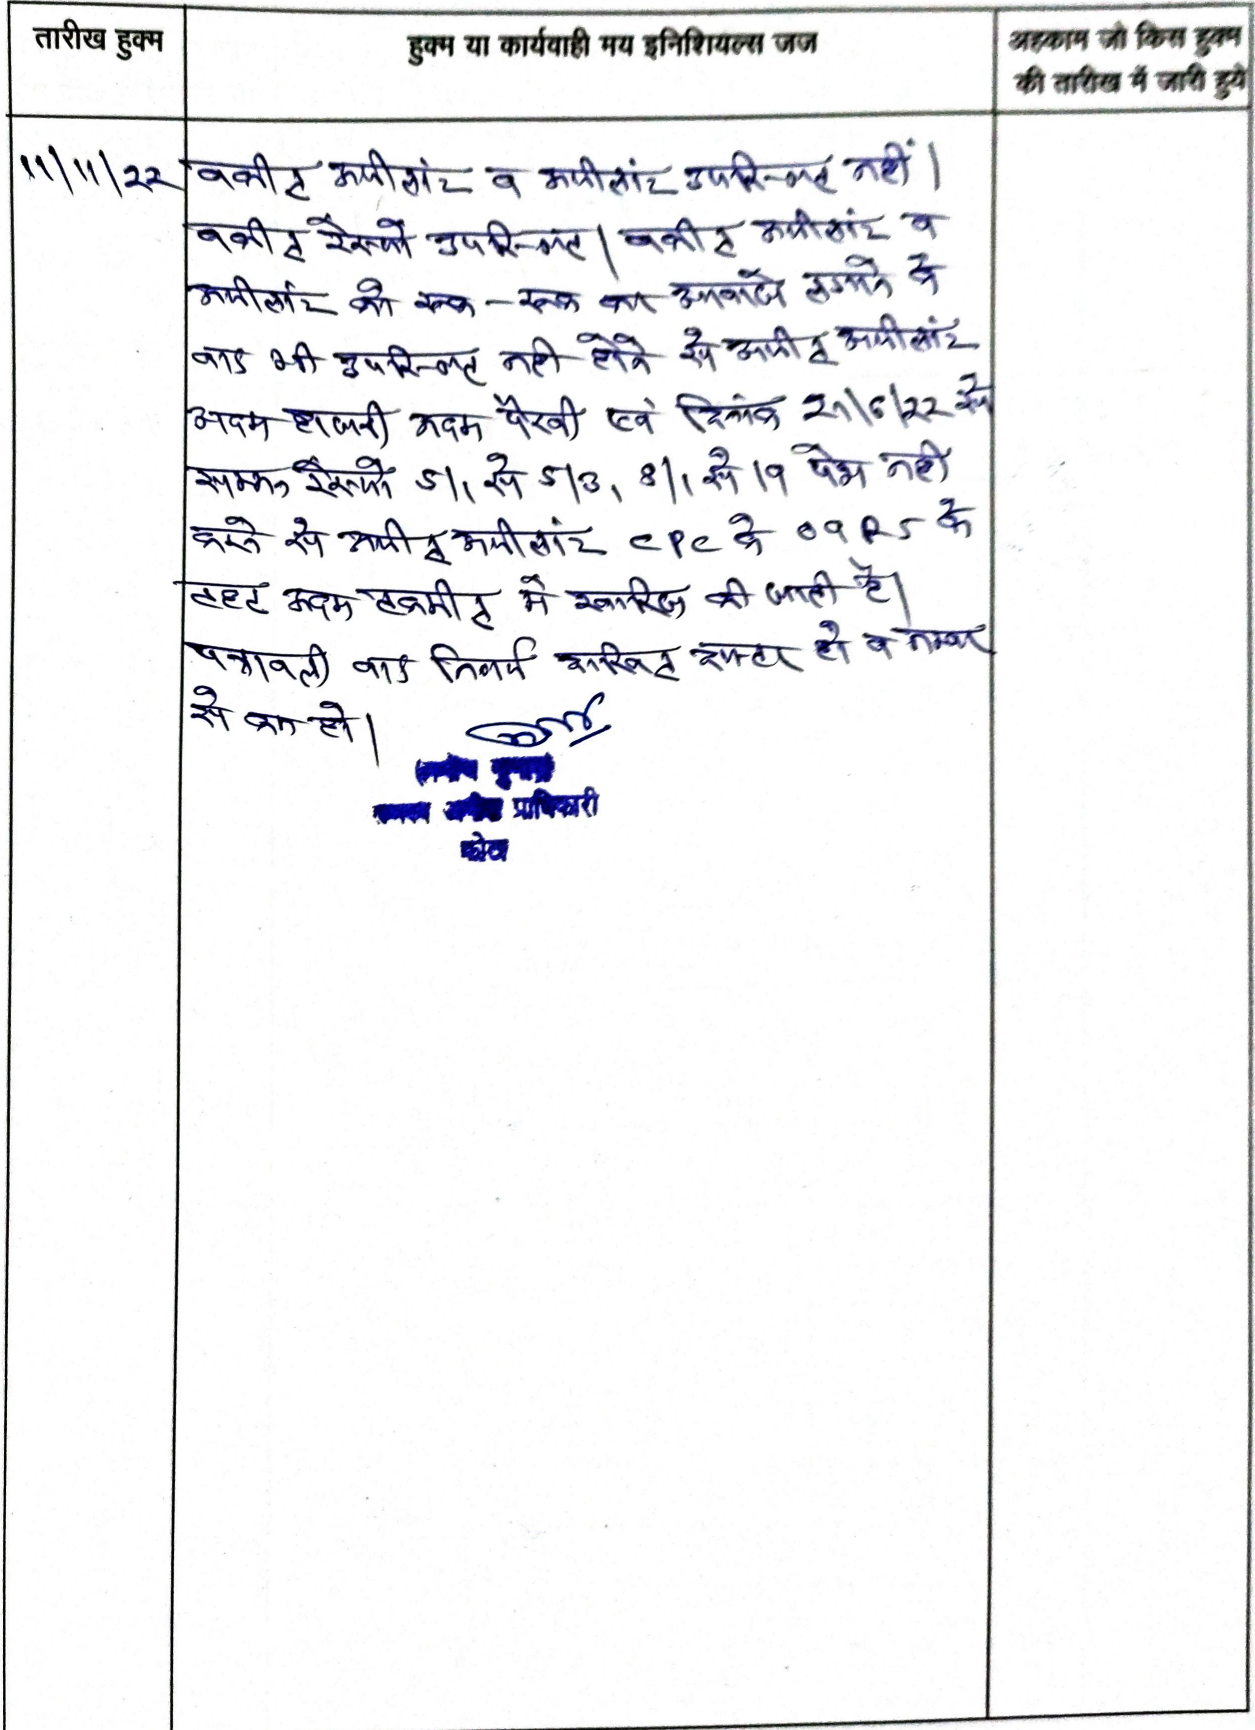 तारीख हुक्म
हुक्म या कार्यवाही मय इनिशियल्स जज
अहकाम जो किस हुक्म
की तारीख में जारी हुये
11/11/22
वकील अपीलांट व अपीलांट उपस्थित नहीं।
वकील रैस्पो उपस्थित। वकील अपीलांट व
अपीलांट को रूक-रूक कर आवाजें लगाने के
बाद भी उपस्थित नही होने से अपील अपीलांट
अदम हाजरी अदम पैरवी एवं दिनांक 21/6/22 से
सम्मन रैस्पो 5/1 से 5/3, 8/1 से 19 पेश नही
करने से अपील अपीलांट CPC के 09 R5 के
तहत अदम तकमील में खारिज की जाती है।
पत्रावली बाद निर्णय दाखिल दफ्तर हो व नम्बर
से कम हो।
प्राधिकारी
कोटा